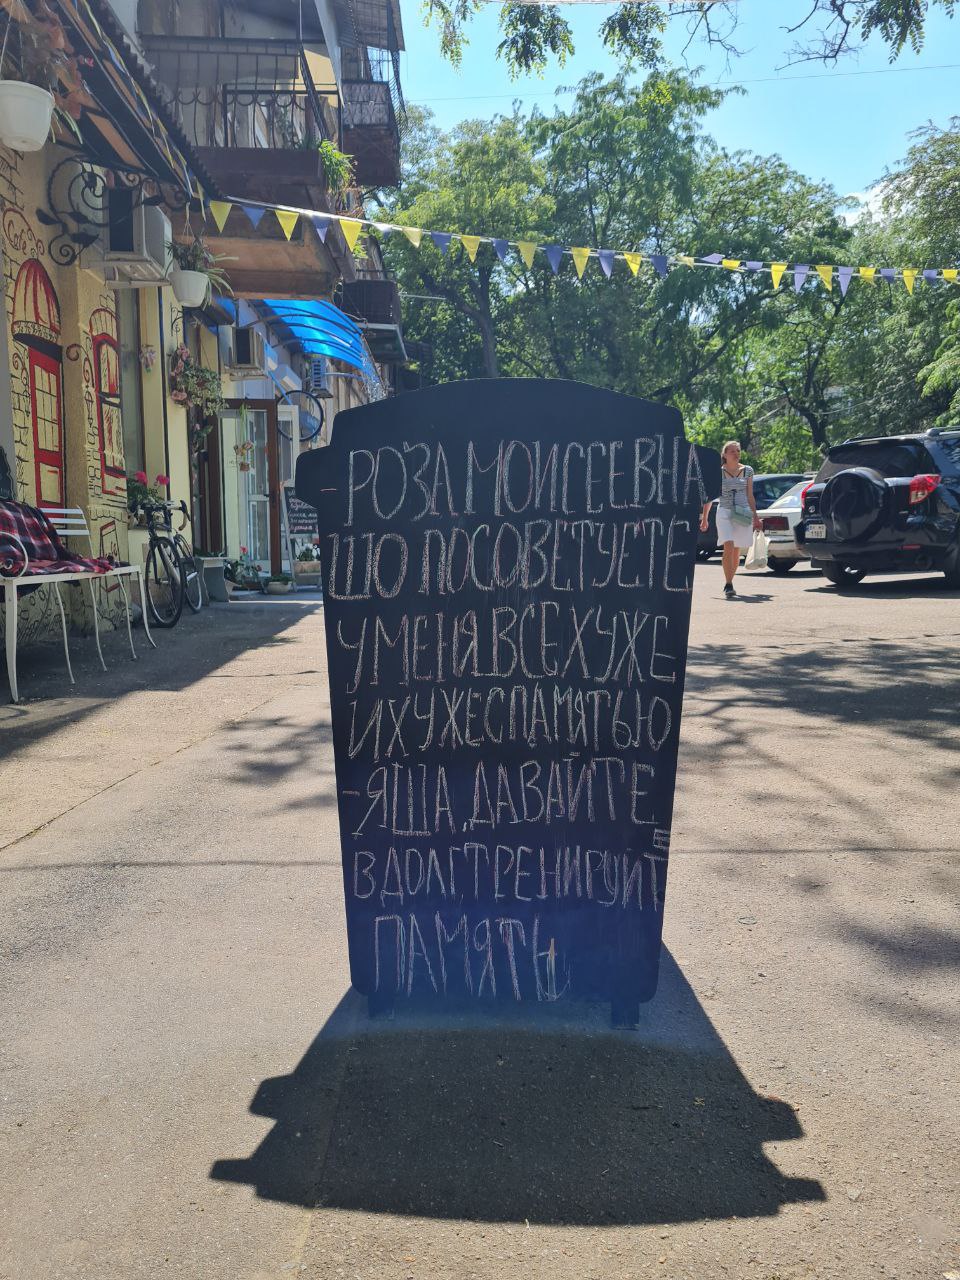 Cafe
- РОЗА МОИСЕЕВНА
ШО ПОСОВЕТУЕТЕ
У МЕНЯ ВСЕ ХУЖЕ
И ХУЖЕ С ПАМЯТЬЮ
- ЯША, ДАВАЙТЕ
В ДОЛГ ТРЕНИРУЙТЕ
ПАМЯТЬ